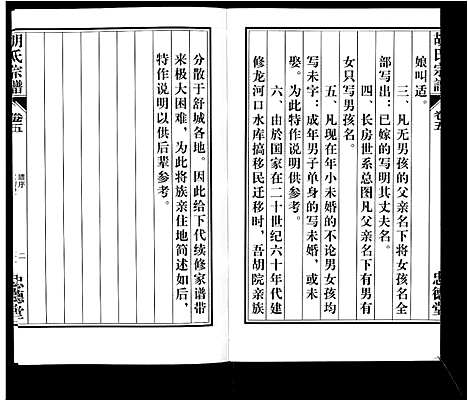 胡氏宗譜
卷五
忠德堂
娘叫适。
三、凡无男孩的父亲名下将女孩名全
部写出：已嫁的写明其丈夫名。
四、长房世系总图凡父亲名下有男有
女只写男孩名。
五、凡现在年小未婚的不论男女孩均
写未字：成年男子单身的写未婚，或未
娶。为此特作说明供参考。
六、由於国家在二十世纪六十年代建
修龙河口水库搞移民迁移时，吾胡院亲族
分散于舒城各地。因此给下代续修家谱带
来极大困难，为此将族亲住地简述如后，
特作说明以供后辈参考。
胡氏宗譜
卷五
譜序
二
忠德堂